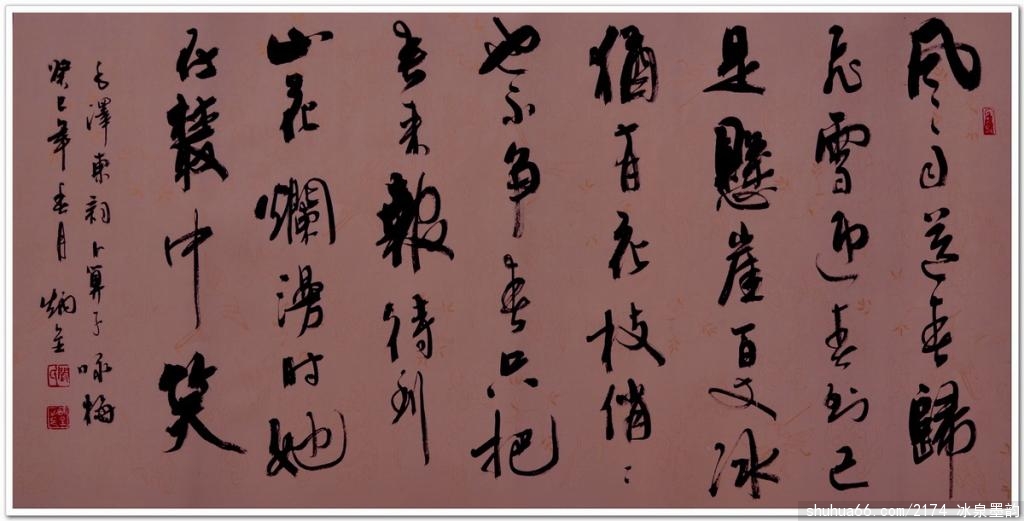 风雨送春歸
飛雪迎春到已
是懸崖百丈冰
猶有花枝俏〻
也不争春只把
春来報待到
山花爛漫时她
在叢中笑
毛澤東詞卜算子咏梅
癸巳年春月 炳金
shuhua66.com/2174 冰泉墨韵